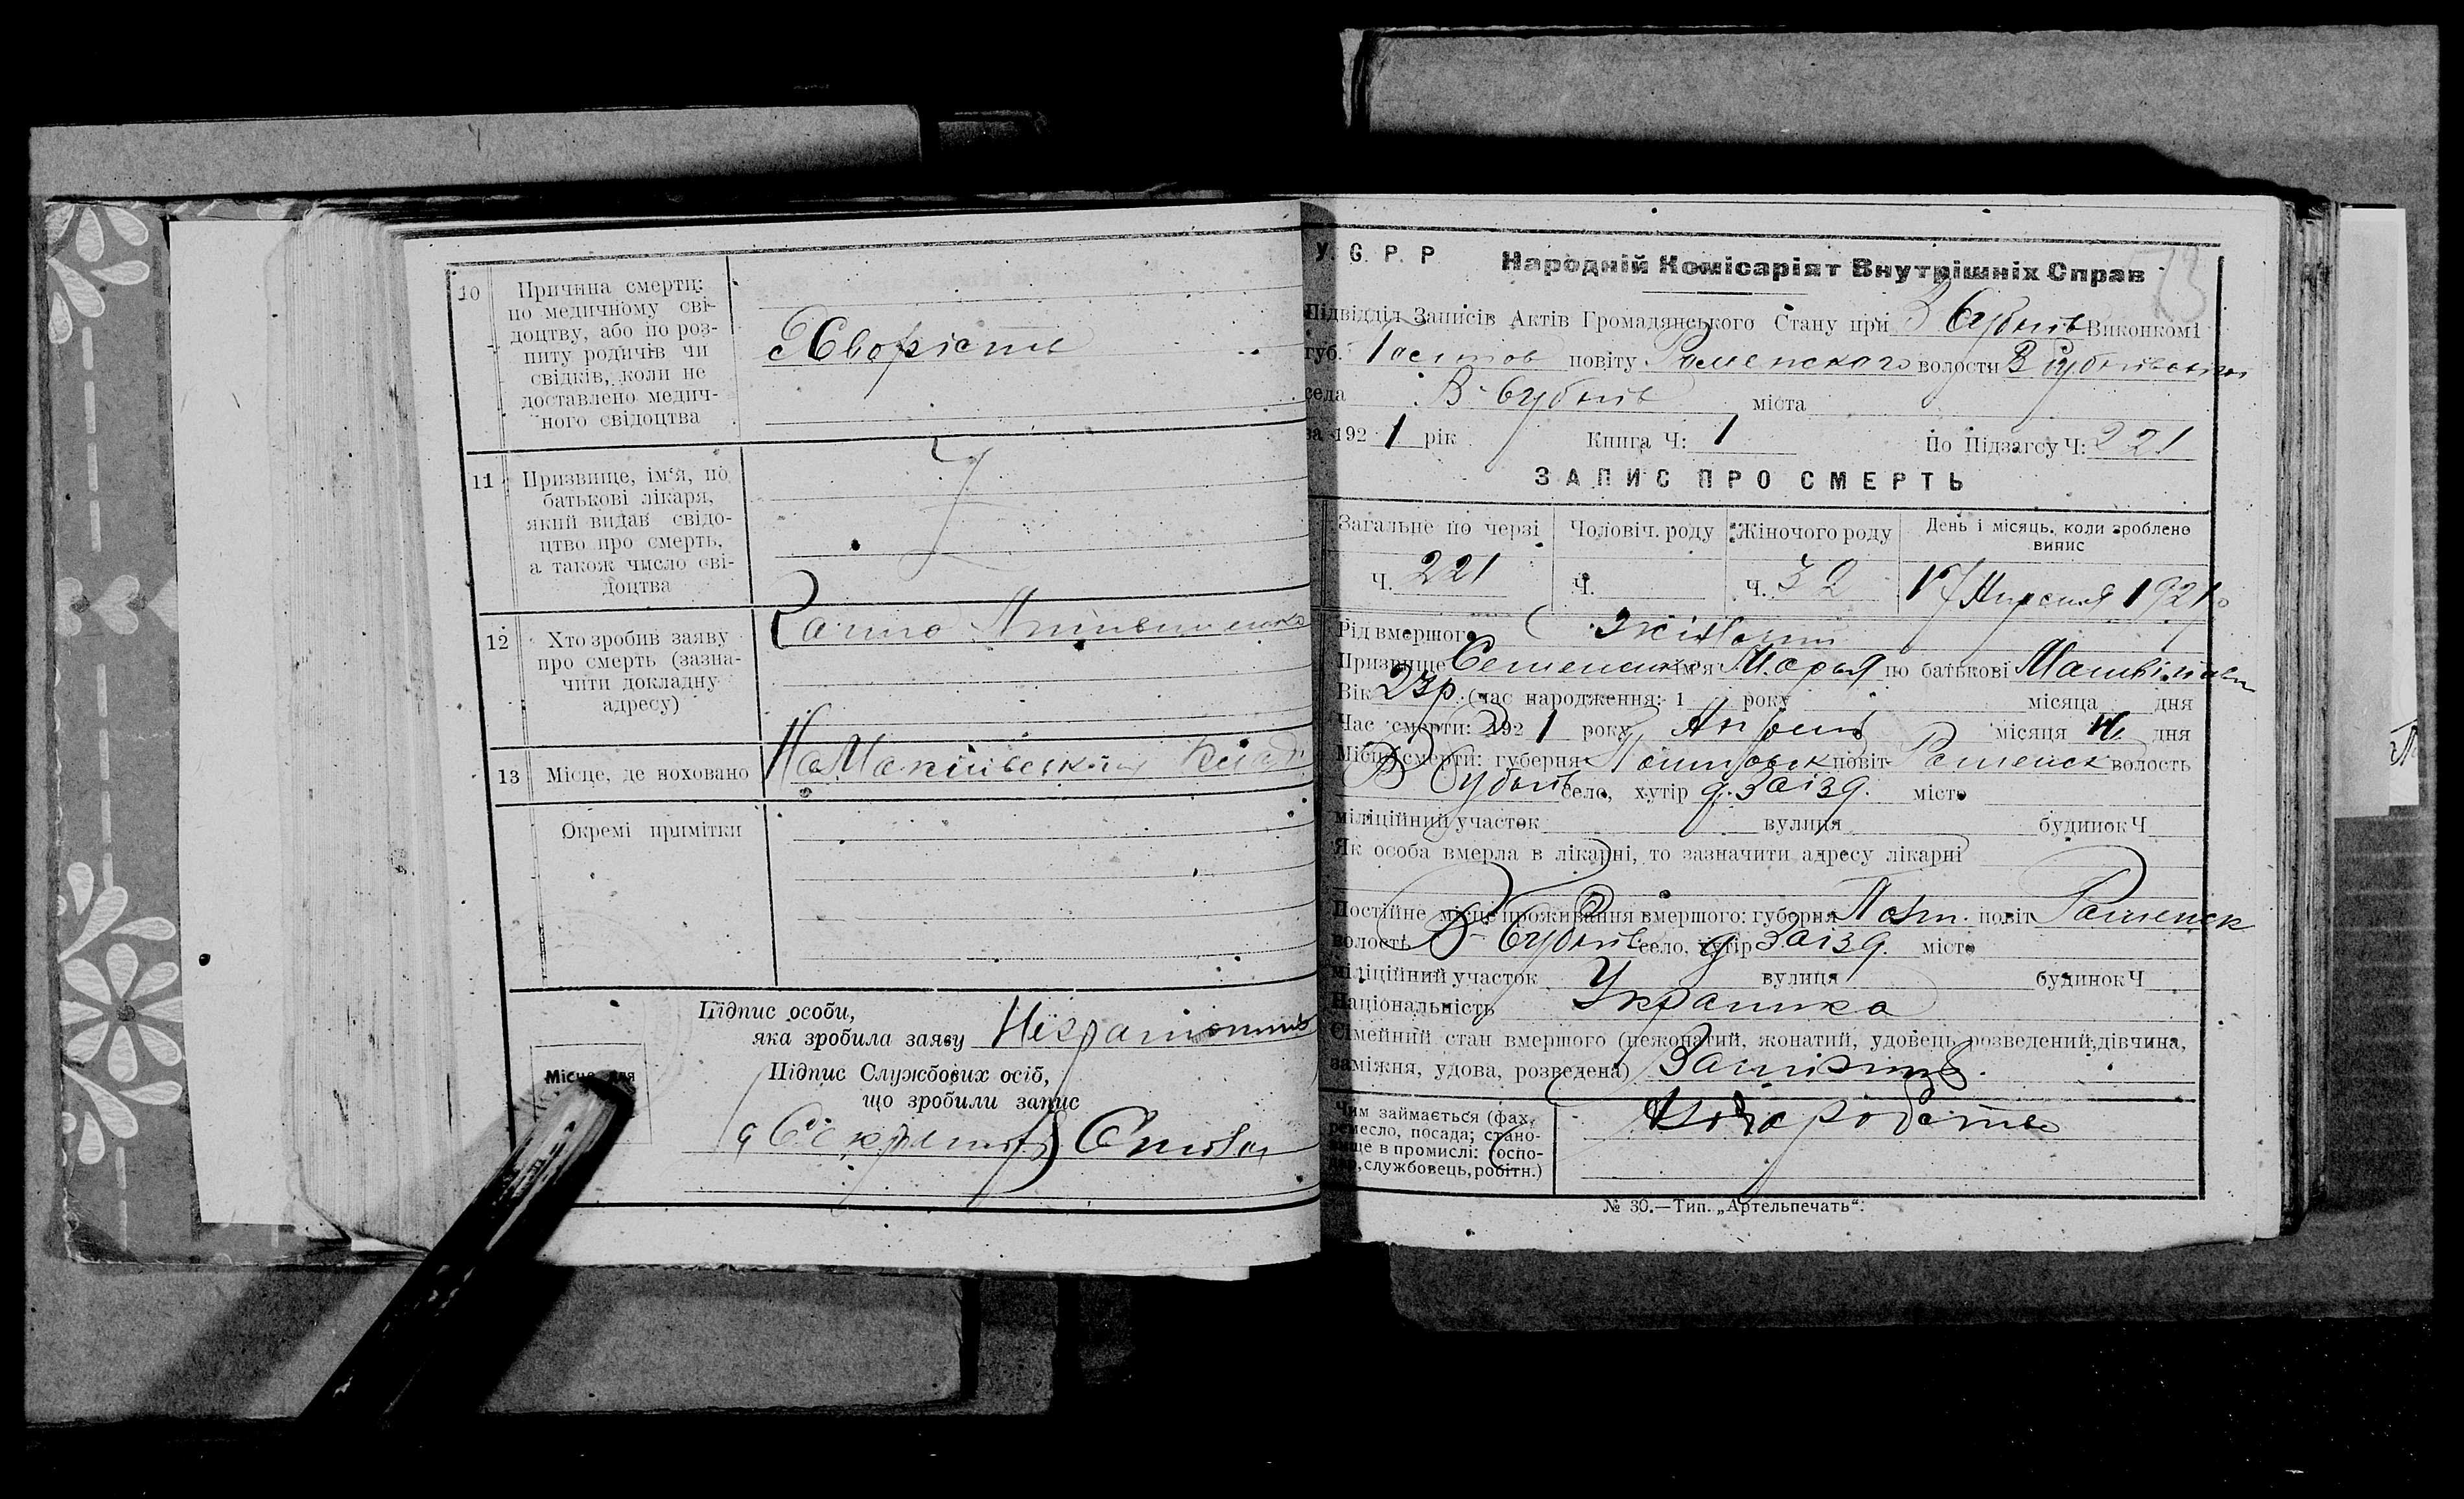 10 Причина смерти:
по медичному сві-
доцтву, або по роз-
питу родичів чи
свідків, коли не
доставлено медич-
ного свідоцтва
Хворість
11 Призвище, ім'я, по
батькові лікаря,
який видав свідо-
цтво про смерть,
а також число сві-
доцтва
12 Хто зробив заяву
про смерть (зазна-
чити докладну
адресу)
13 Місце, де поховано На
Окремі примітки
Підпис особи,
яка зробила заяву
Підпис Службових осіб,
що зробили запис
Місце для
У. С. Р. Р Народній Комісаріят Внутрішніх Справ
73
Підвідділ Записів Актів Громадянського Стану при В Бубнів Виконкомі
губ. повіту Роменского волости В Бубнівської
села В-Бубнів міста
за 1921 рік Книга Ч: 1 По Підзагсу Ч: 221
ЗАПИС ПРО СМЕРТЬ
Загальне по черзі Чоловіч. роду Жіночого роду День і місяць, коли зроблено
випис
Ч. 221 Ч. Ч. 32 17 Апреля 1921 р
Рід вмершого Жіночий
Призвище Семененко ім'я Марья по батькові Матвіївна
Вік 23р. (час народження: 1 року місяца дня
Час смерти: 1921 року Апреля місяця дня
Місце смерти: губерня Полтовск повіт Роменск волость
В Бубнів село, хутір д. Заізд. місто
міліційний участок вулиця будинок Ч
Як особа вмерла в лікарні, то зазначити адресу лікарні
Постійне місце проживання вмершого: губерня Полт. повіт Роменск
волость В-Бубнів село, хутір д Заізд. місто
міліційний участок вулиця будинок Ч
Національність Украинка
Сімейний стан вмершого (нежонатий, жонатий, удовець, розведений, дівчина,
заміжня, удова, розведена) Замізтня.
Чим займається (фах,
ремесло, посада; стано-
вище в промислі: госпо-
дар, службовець, робітн.)
Хліборобство
№ 30.—Тип. „Артельпечать“.